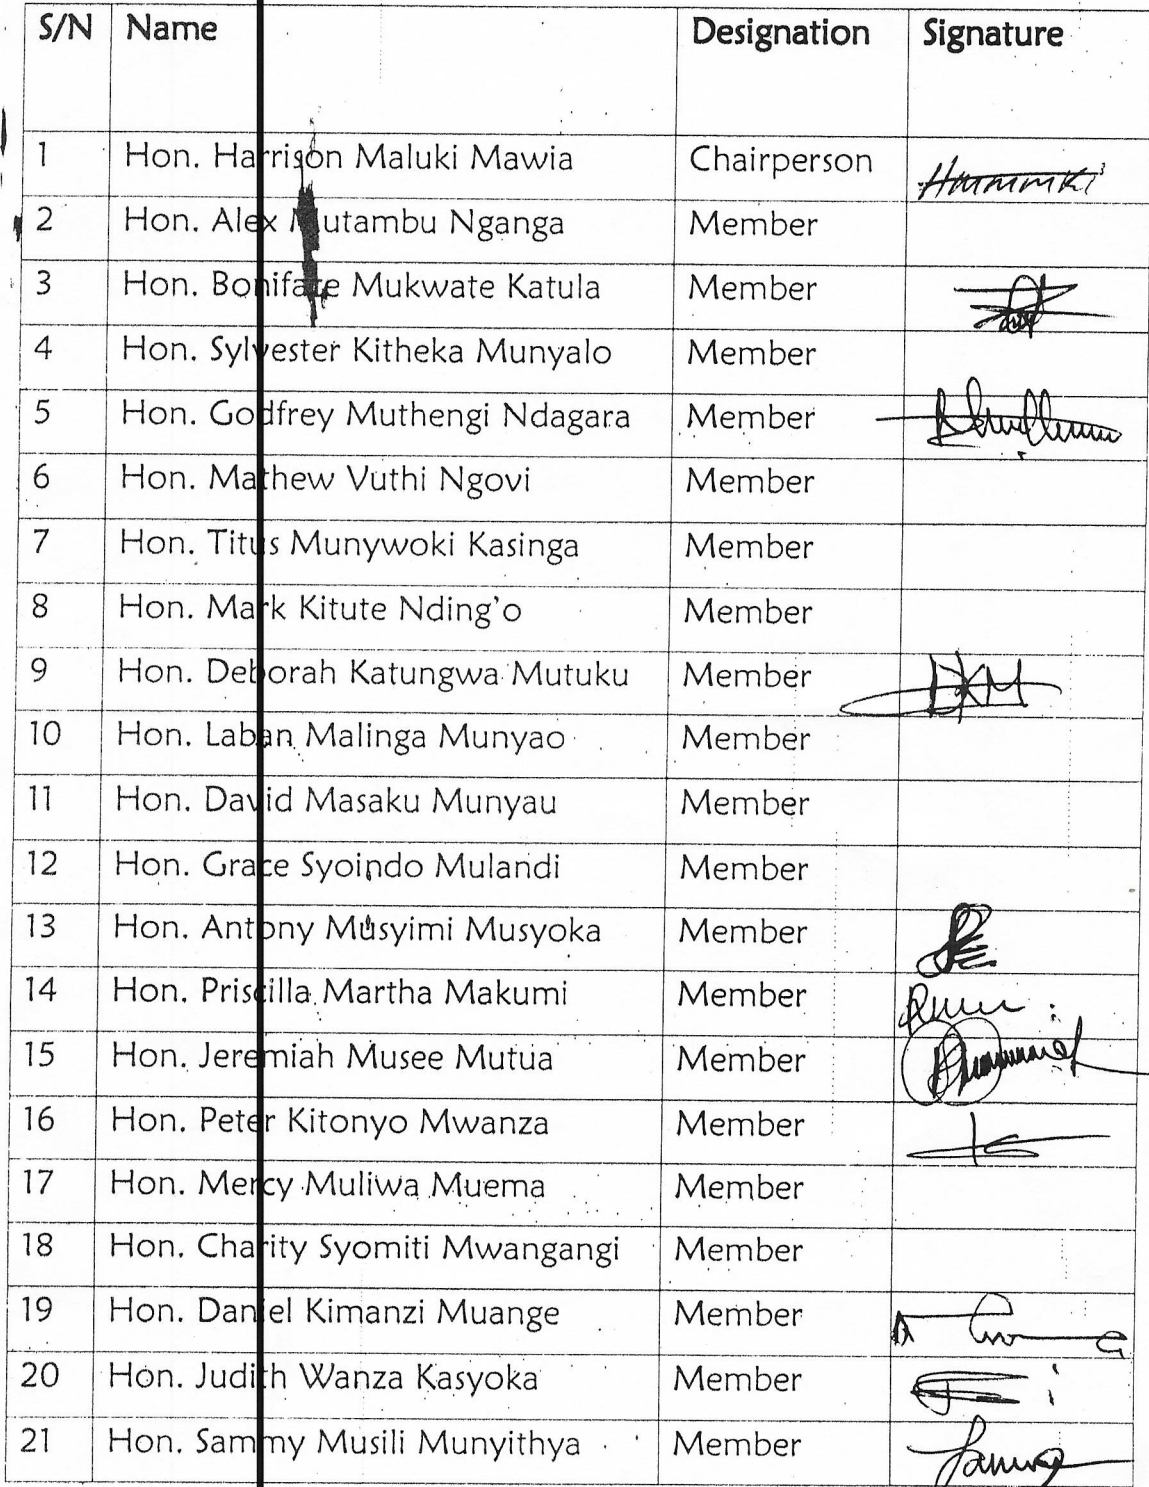 S/N Name Designation Signature
1 Hon. Harrison Maluki Mawia Chairperson
2 Hon. Alex Mutambu Nganga Member
3 Hon. Boniface Mukwate Katula Member
4 Hon. Sylvester Kitheka Munyalo Member
5 Hon. Godfrey Muthengi Ndagara Member
6 Hon. Mathew Vuthi Ngovi Member
7 Hon. Titus Munywoki Kasinga Member
8 Hon. Mark Kitute Nding'o Member
9 Hon. Deborah Katungwa Mutuku Member DKM
10 Hon. Laban Malinga Munyao Member
11 Hon. David Masaku Munyau Member
12 Hon. Grace Syoindo Mulandi Member
13 Hon. Antony Musyimi Musyoka Member
14 Hon. Priscilla Martha Makumi Member
15 Hon. Jeremiah Musee Mutua Member
16 Hon. Peter Kitonyo Mwanza Member
17 Hon. Mercy Muliwa Muema Member
18 Hon. Charity Syomiti Mwangangi Member
19 Hon. Daniel Kimanzi Muange Member
20 Hon. Judith Wanza Kasyoka Member
21 Hon. Sammy Musili Munyithya Member